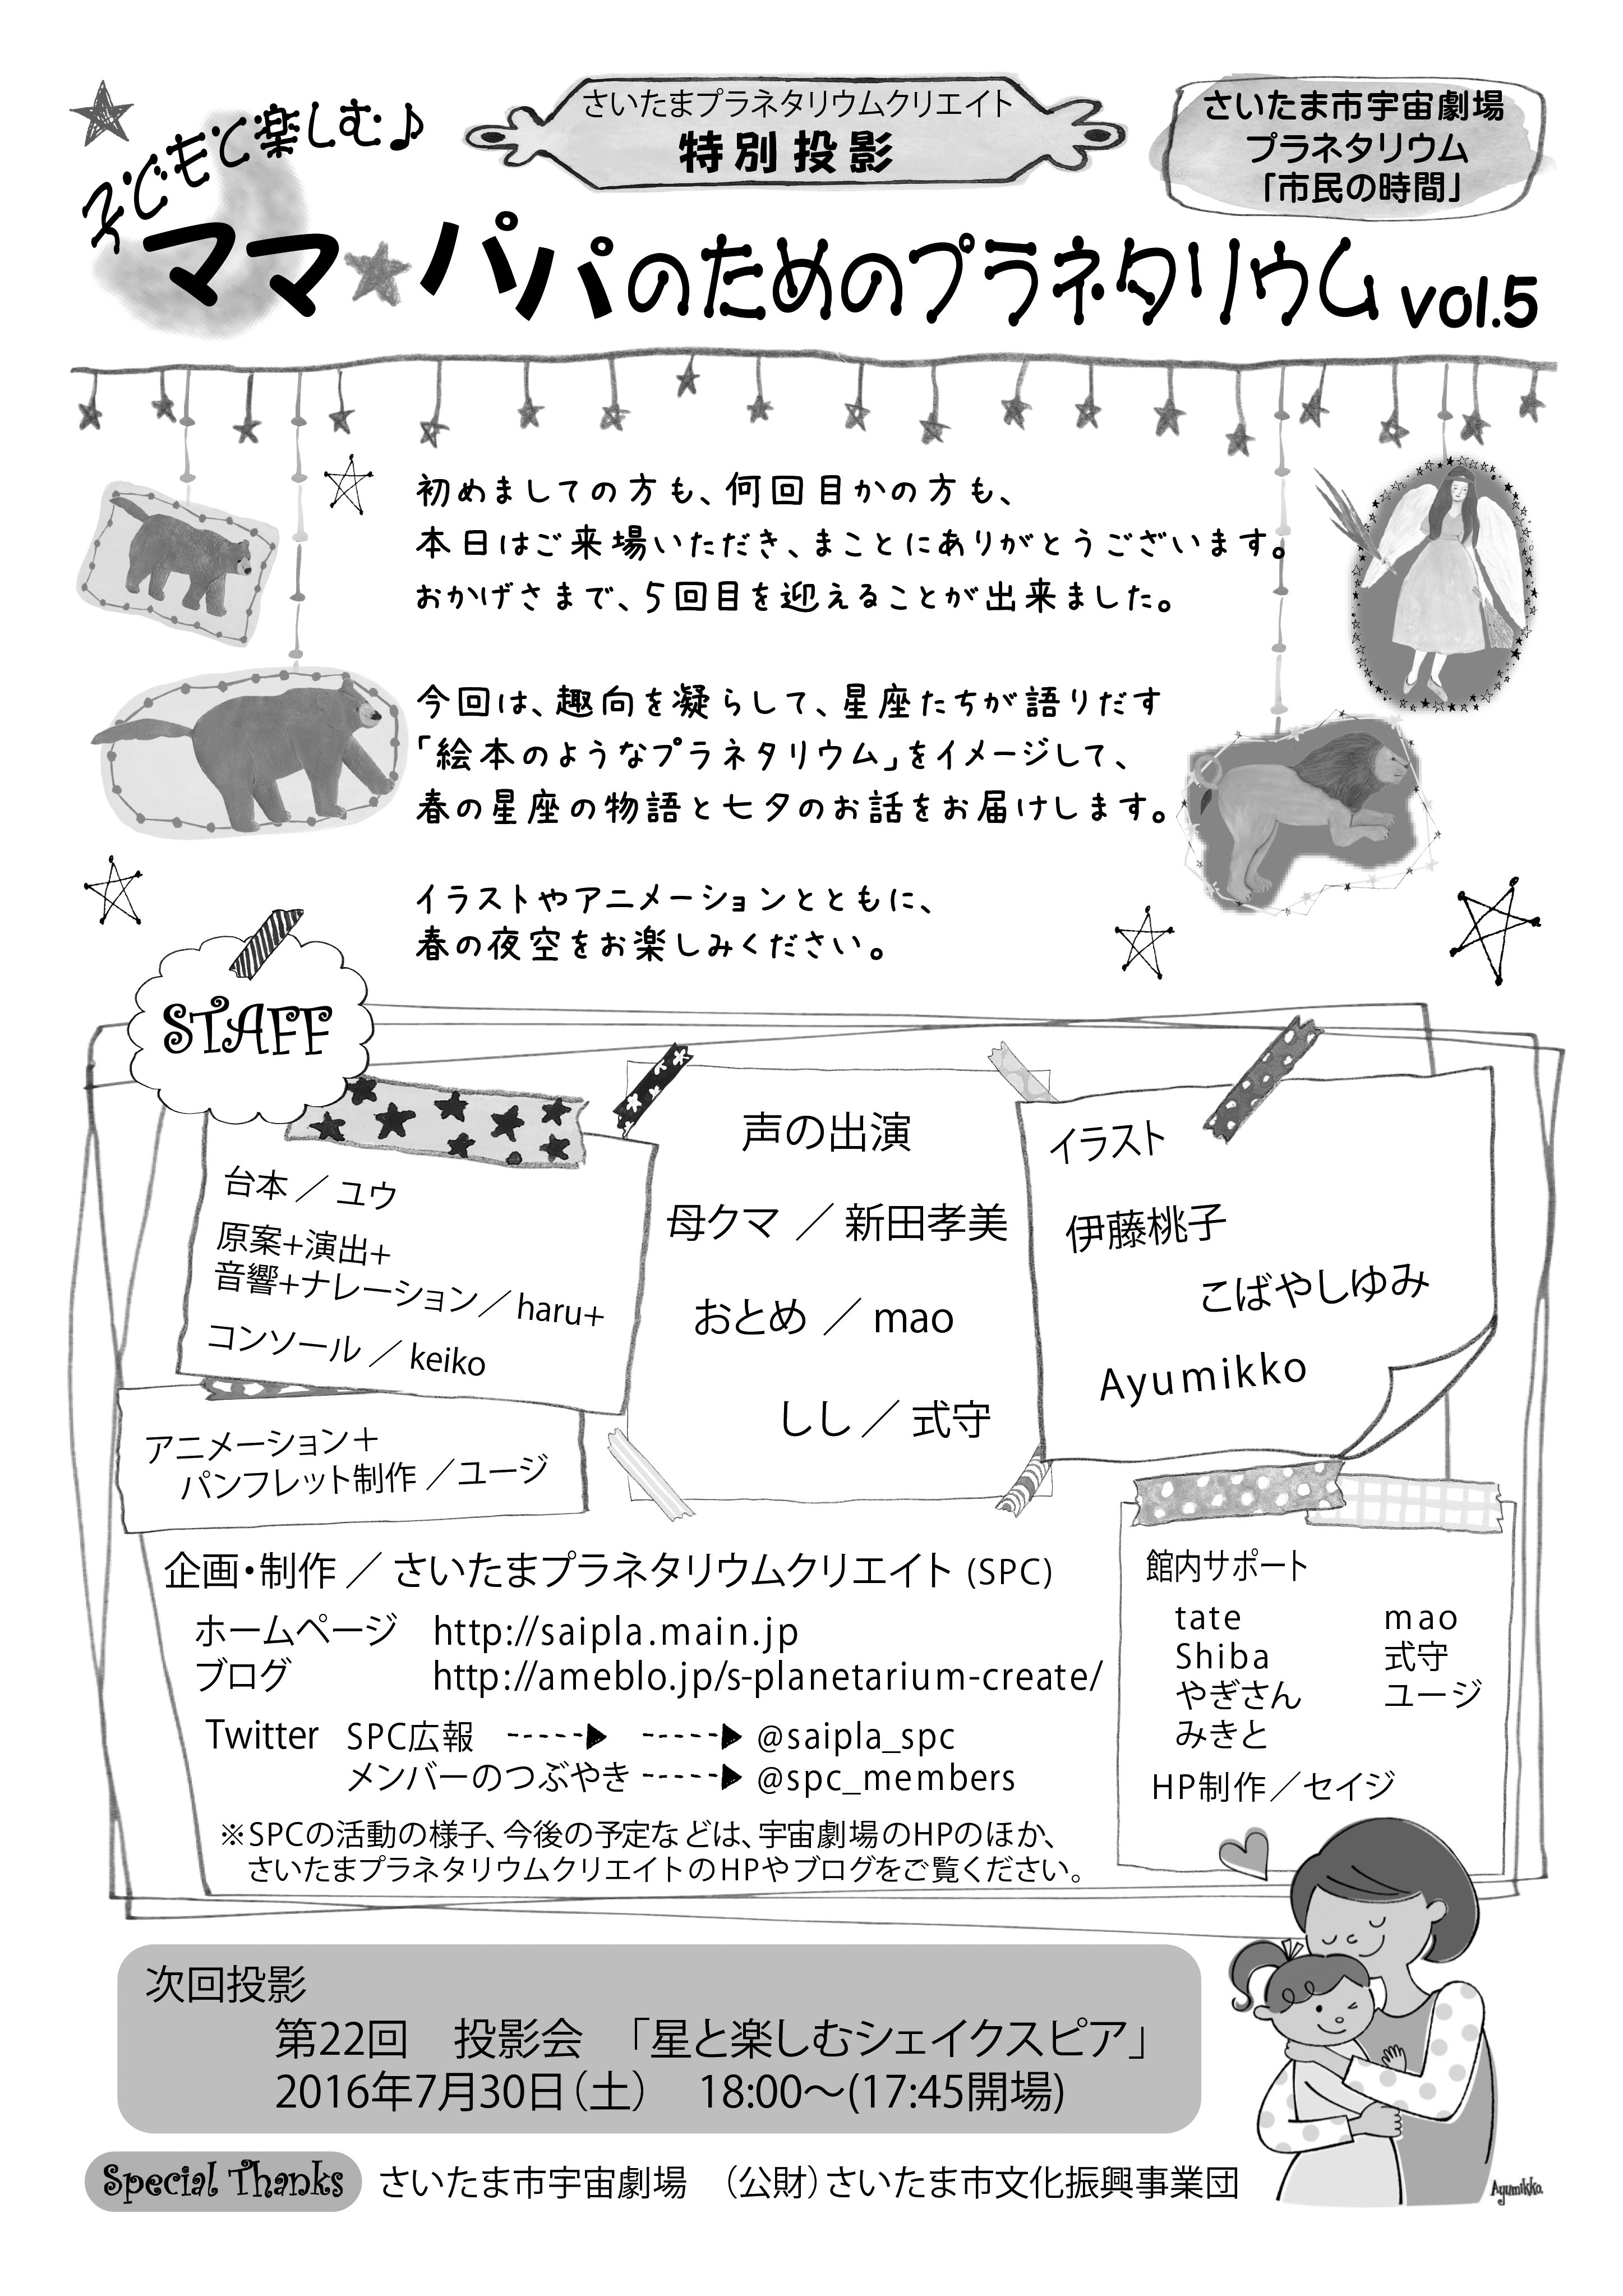 さいたまプラネタリウムクリエイト
特別投影
さいたま市宇宙劇場
プラネタリウム
「市民の時間」
子どもと楽しむ♪
ママ★パパのためのプラネタリウム vol.5
初めましての方も、何回目かの方も、
本日はご来場いただき、まことにありがとうございます。
おかげさまで、5回目を迎えることが出来ました。
今回は、趣向を凝らして、星座たちが語りだす
「絵本のようなプラネタリウム」をイメージして、
春の星座の物語と七夕のお話をお届けします。
イラストやアニメーションとともに、
春の夜空をお楽しみください。
STAFF
台本／ユウ
原案+演出+
音響+ナレーション／haru+
コンソール／keiko
アニメーション+
パンフレット制作／ユージ
声の出演
母クマ ／ 新田孝美
おとめ ／ mao
しし ／ 式守
イラスト
伊藤桃子
こばやしゆみ
Ayumikko
企画・制作 ／ さいたまプラネタリウムクリエイト (SPC)
ホームページ http://saipla.main.jp
ブログ http://ameblo.jp/s-planetarium-create/
Twitter SPC広報 -----▶ -----▶ @saipla_spc
メンバーのつぶやき -----▶ @spc_members
※SPCの活動の様子、今後の予定などは、宇宙劇場のHPのほか、
さいたまプラネタリウムクリエイトのHPやブログをご覧ください。
館内サポート
tate mao
Shiba 式守
やぎさん ユージ
みきと
HP制作／セイジ
次回投影
第22回 投影会 「星と楽しむシェイクスピア」
2016年7月30日（土） 18:00～(17:45開場)
Special Thanks さいたま市宇宙劇場 （公財）さいたま市文化振興事業団
Ayumikko.